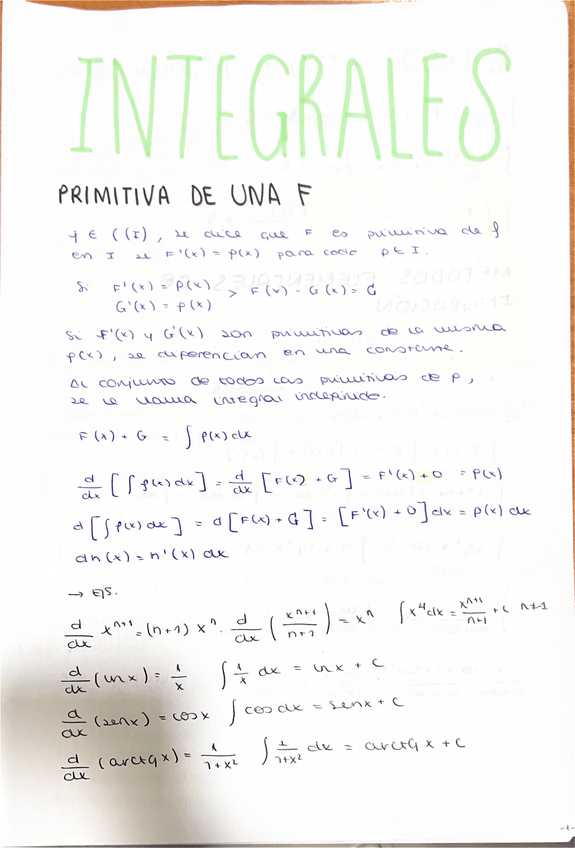 INTEGRALES
PRIMITIVA DE UNA F
f ∈ C(I), se dice que F es primitiva de f
en I si F'(x) = p(x) para cada p ∈ I.
Si F'(x) = p(x) > F(x) - G(x) = C
G'(x) = p(x)
Si F'(x) y G'(x) son primitivas de la misma
p(x), se diferencian en una constante.
Al conjunto de todos las primitivas de p,
se le llama integral indefinida.
F(x) + C = ∫ p(x) dx
d/dx [∫ p(x) dx] = d/dx [F(x) + C] = F'(x) + 0 = p(x)
d [∫ p(x) dx] = d [F(x) + C] = [F'(x) + 0] dx = p(x) dx
dh(x) = h'(x) dx
→ EJS.
d/dx x^(n+1) = (n+1) x^n. d/dx (x^(n+1)/(n+1)) = x^n ∫ x^4 dx = x^(n+1)/(n+1) + C n≠-1
d/dx (ln x) = 1/x ∫ 1/x dx = ln x + C
d/dx (sen x) = cos x ∫ cos dx = sen x + C
d/dx (arctg x) = 1/(1+x²) ∫ 1/(1+x²) dx = arctg x + C
-1-